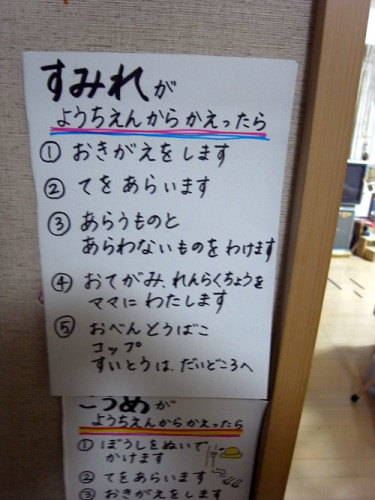 すみれが
ようちえんからかえったら
① おきがえをします
② てをあらいます
③ あらうものと
あらわないものをわけます
④ おてがみ、れんらくちょうを
ママにわたします
⑤ おべんとうばこ
コップ
すいとうは、だいどころへ
こうめが
ようちえんからかえったら
① ぼうしをぬいで
かけます
② てをあらいます
③ おきがえをします